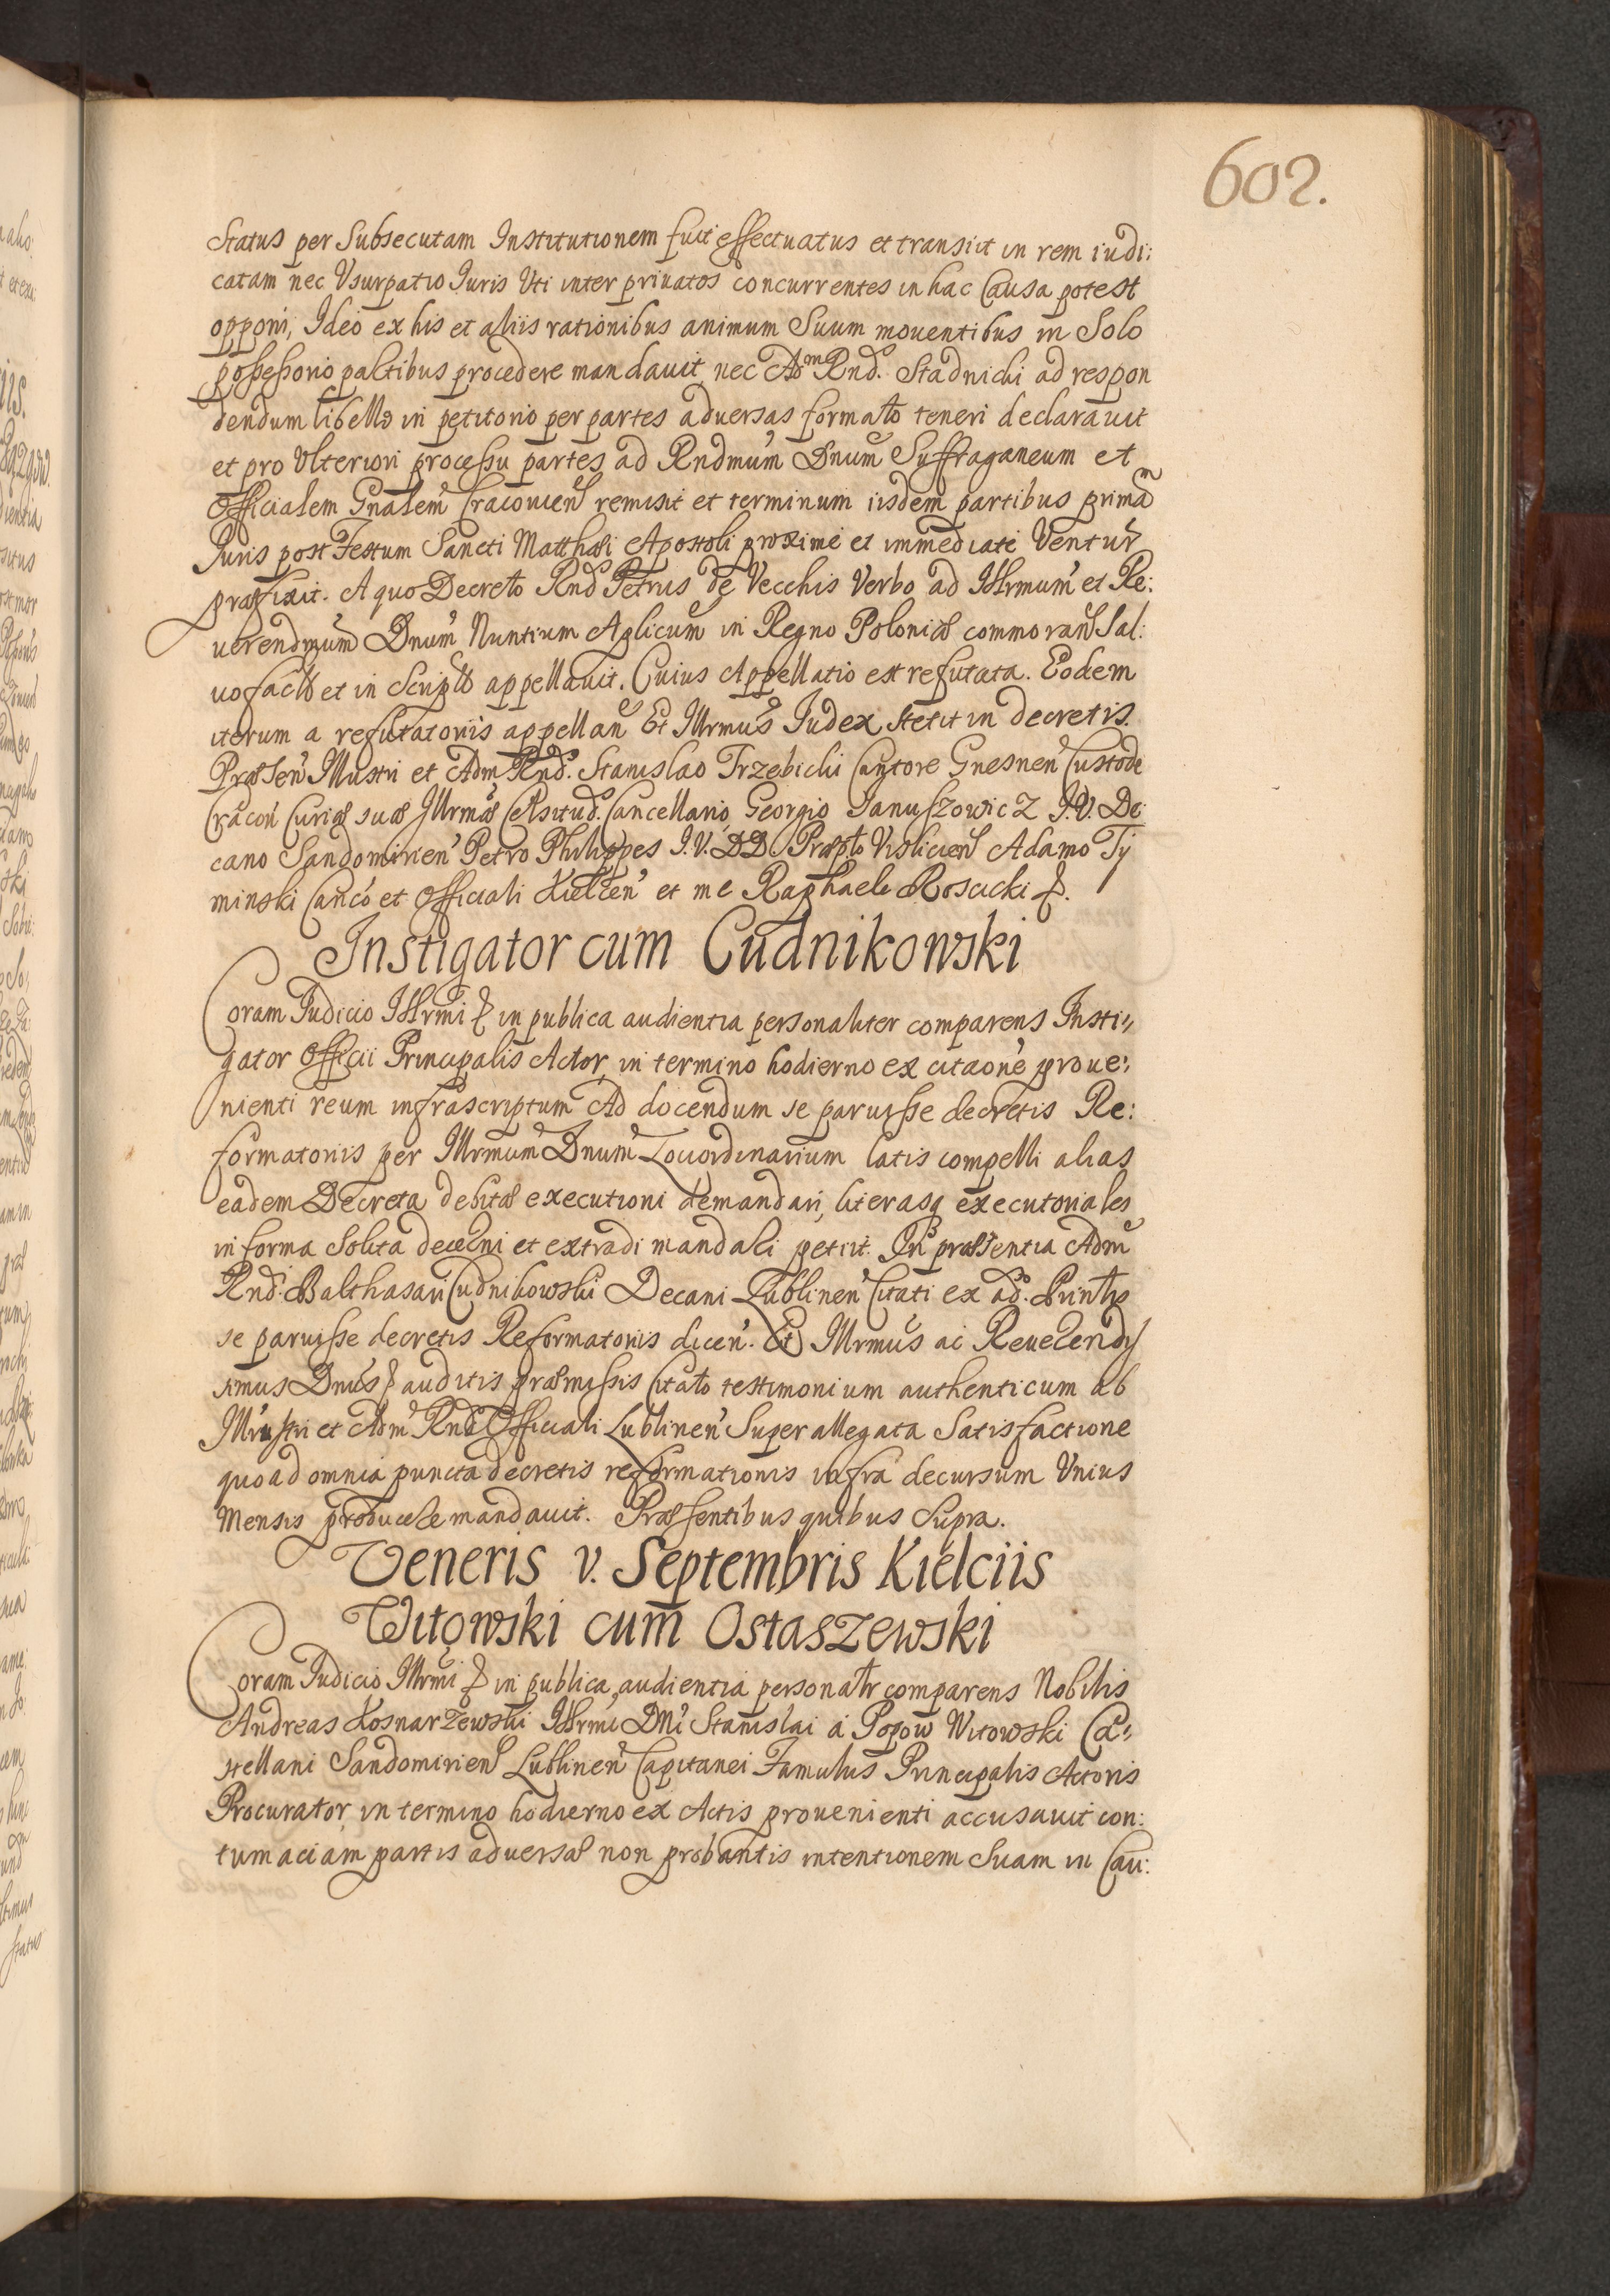 602.
Status per Subsecutam Institutionem fuit effectuatus et transiit in rem iudi:
catam nec Vsurpatio Iuris Vti inter priuatos concurrentes in hac Causa potest
opponi, Ideo ex his et aliis rationibus animum Suum mouentibus in Solo
possessorio partibus procedere mandauit, nec Adm Rnd. Stadnicki ad respon
dendum libello in petitorio per partes aduersas formato teneri declarauit
et pro Vlteriori processu partes ad Rndmum Dnum Suffraganeum et
Officialem Gnalem Cracouien remisit et terminum iisdem partibus primam
Iuris post Festum Sancti Matthæi Apostoli proxime et immediate Ventur
præfixit. A quo Decreto Rnd Petrus de Vecchis Verbo ad Illrmum et Re:
uerendmum Dnum Nuntium Aplicum in Regno Poloniæ commoran Sal:
uo facto et in Scripto appellauit. Cuius Appellatio est refutata. Eodem
iterum a refutatoriis appellan Et Illrmus Iudex stetit in decretis.
Præsen Illustri et Adm Rnd. Stanislao Trzebicki Cantore Gnesnen Custode
Cracou Curiæ suæ Illrmæ Celsitud. Cancellario, Georgio Ianuszowicz I.V.D. De
cano Sandomirien Petro Philippes I.V.DD. Præpto Visliciens Adamo Ty
minski Canco et Officiali Kielcen et me Raphaele Roscicki &.
Instigator cum Cudnikowski
Coram Iudicio Illrmi & in publica audientia personaliter comparens Insti:
gator Officii Principalis Actor, in termino hodierno ex citaone proue:
nienti reum infrascriptum Ad docendum se paruisse decretis Re:
formatoriis per Illrmum Dnum Locordinarium latis compelli alias
eadem Decreta debitæ executioni demandari, literasq executoriales
in forma Solita decerni et extradi mandari petiit. In præsentia Adm
Rnd. Balthasari Cudnikowski Decani Lublinen Citati ex ad. Printis
se paruisse decretis Reformatoriis dicen. Et Illrmus ac Reuerendis
simus Dnus & auditis præmissis Citato testimonium authenticum ab
Illrustri et Adm Rnd Officiali Lublinen Super allegata Satisfactione
quoad omnia puncta decretis reformationis infra decursum Vnius
Mensis producere mandauit. Præsentibus quibus Supra.
Veneris v. Septembris Kielciis
Witowski cum Ostaszewski
Coram Iudicio Illrmi & in publica audientia personalr comparens Nobilis
Andreas Kosnarzewski Illrmi Dni Stanislai a Popow Witowski Ca:
stellani Sandomirien Lublinen Capitanei Famulus Principalis Actoris
Procurator, in termino hodierno ex Actis prouenienti accusauit con:
tumaciam partis aduersæ non probantis intentionem Suam in Cau: